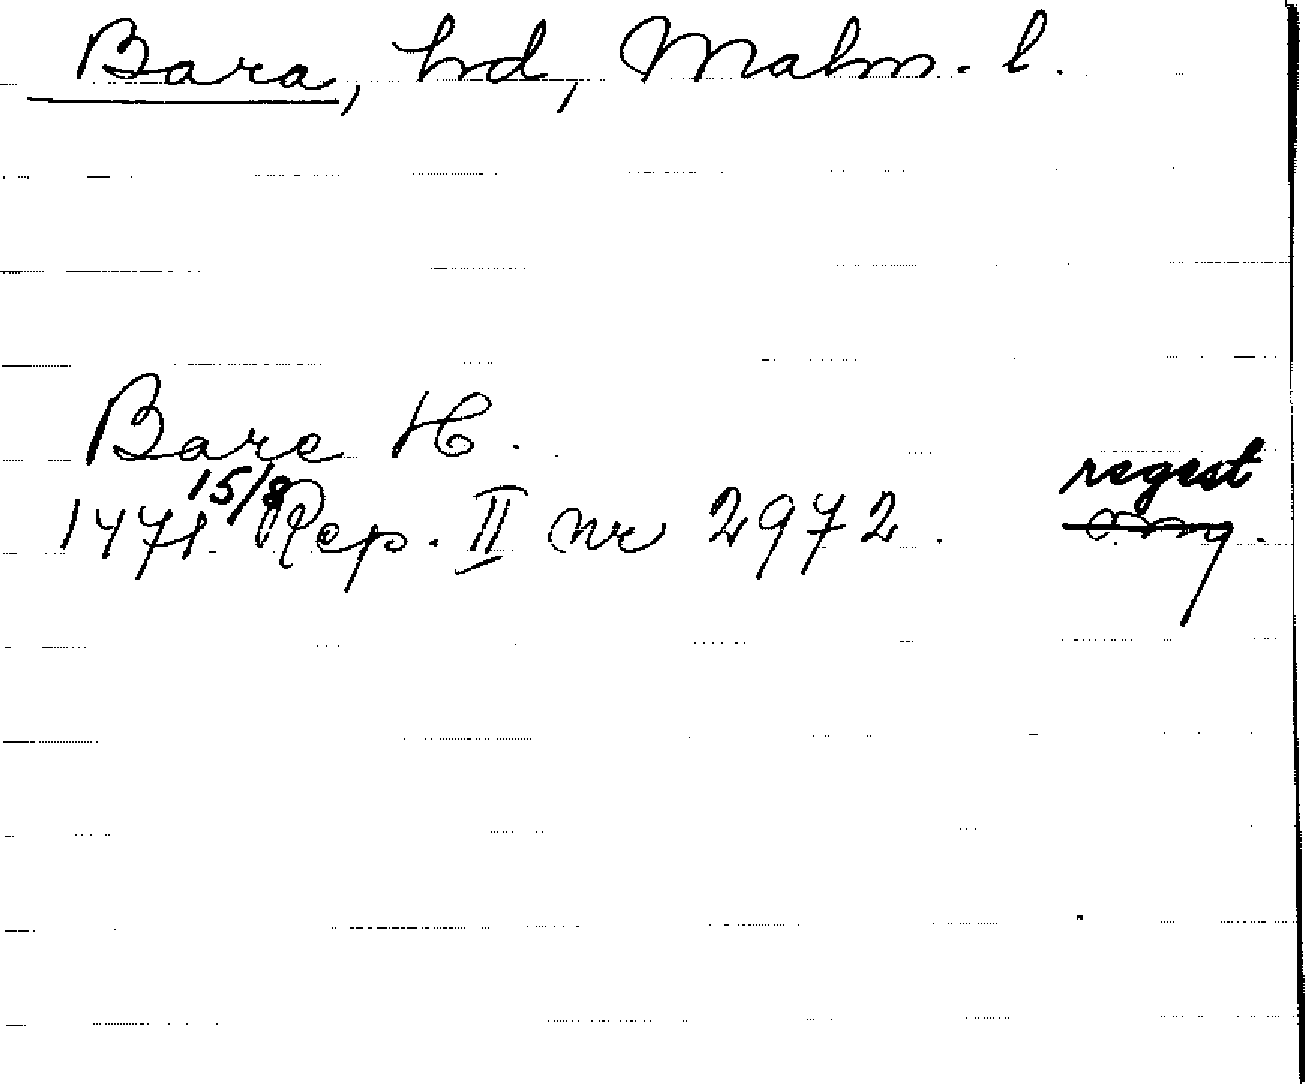 Bara, hd, Malm. l.
Bare H.
regest
1471 15/8 Rep. II nr 2972. org.